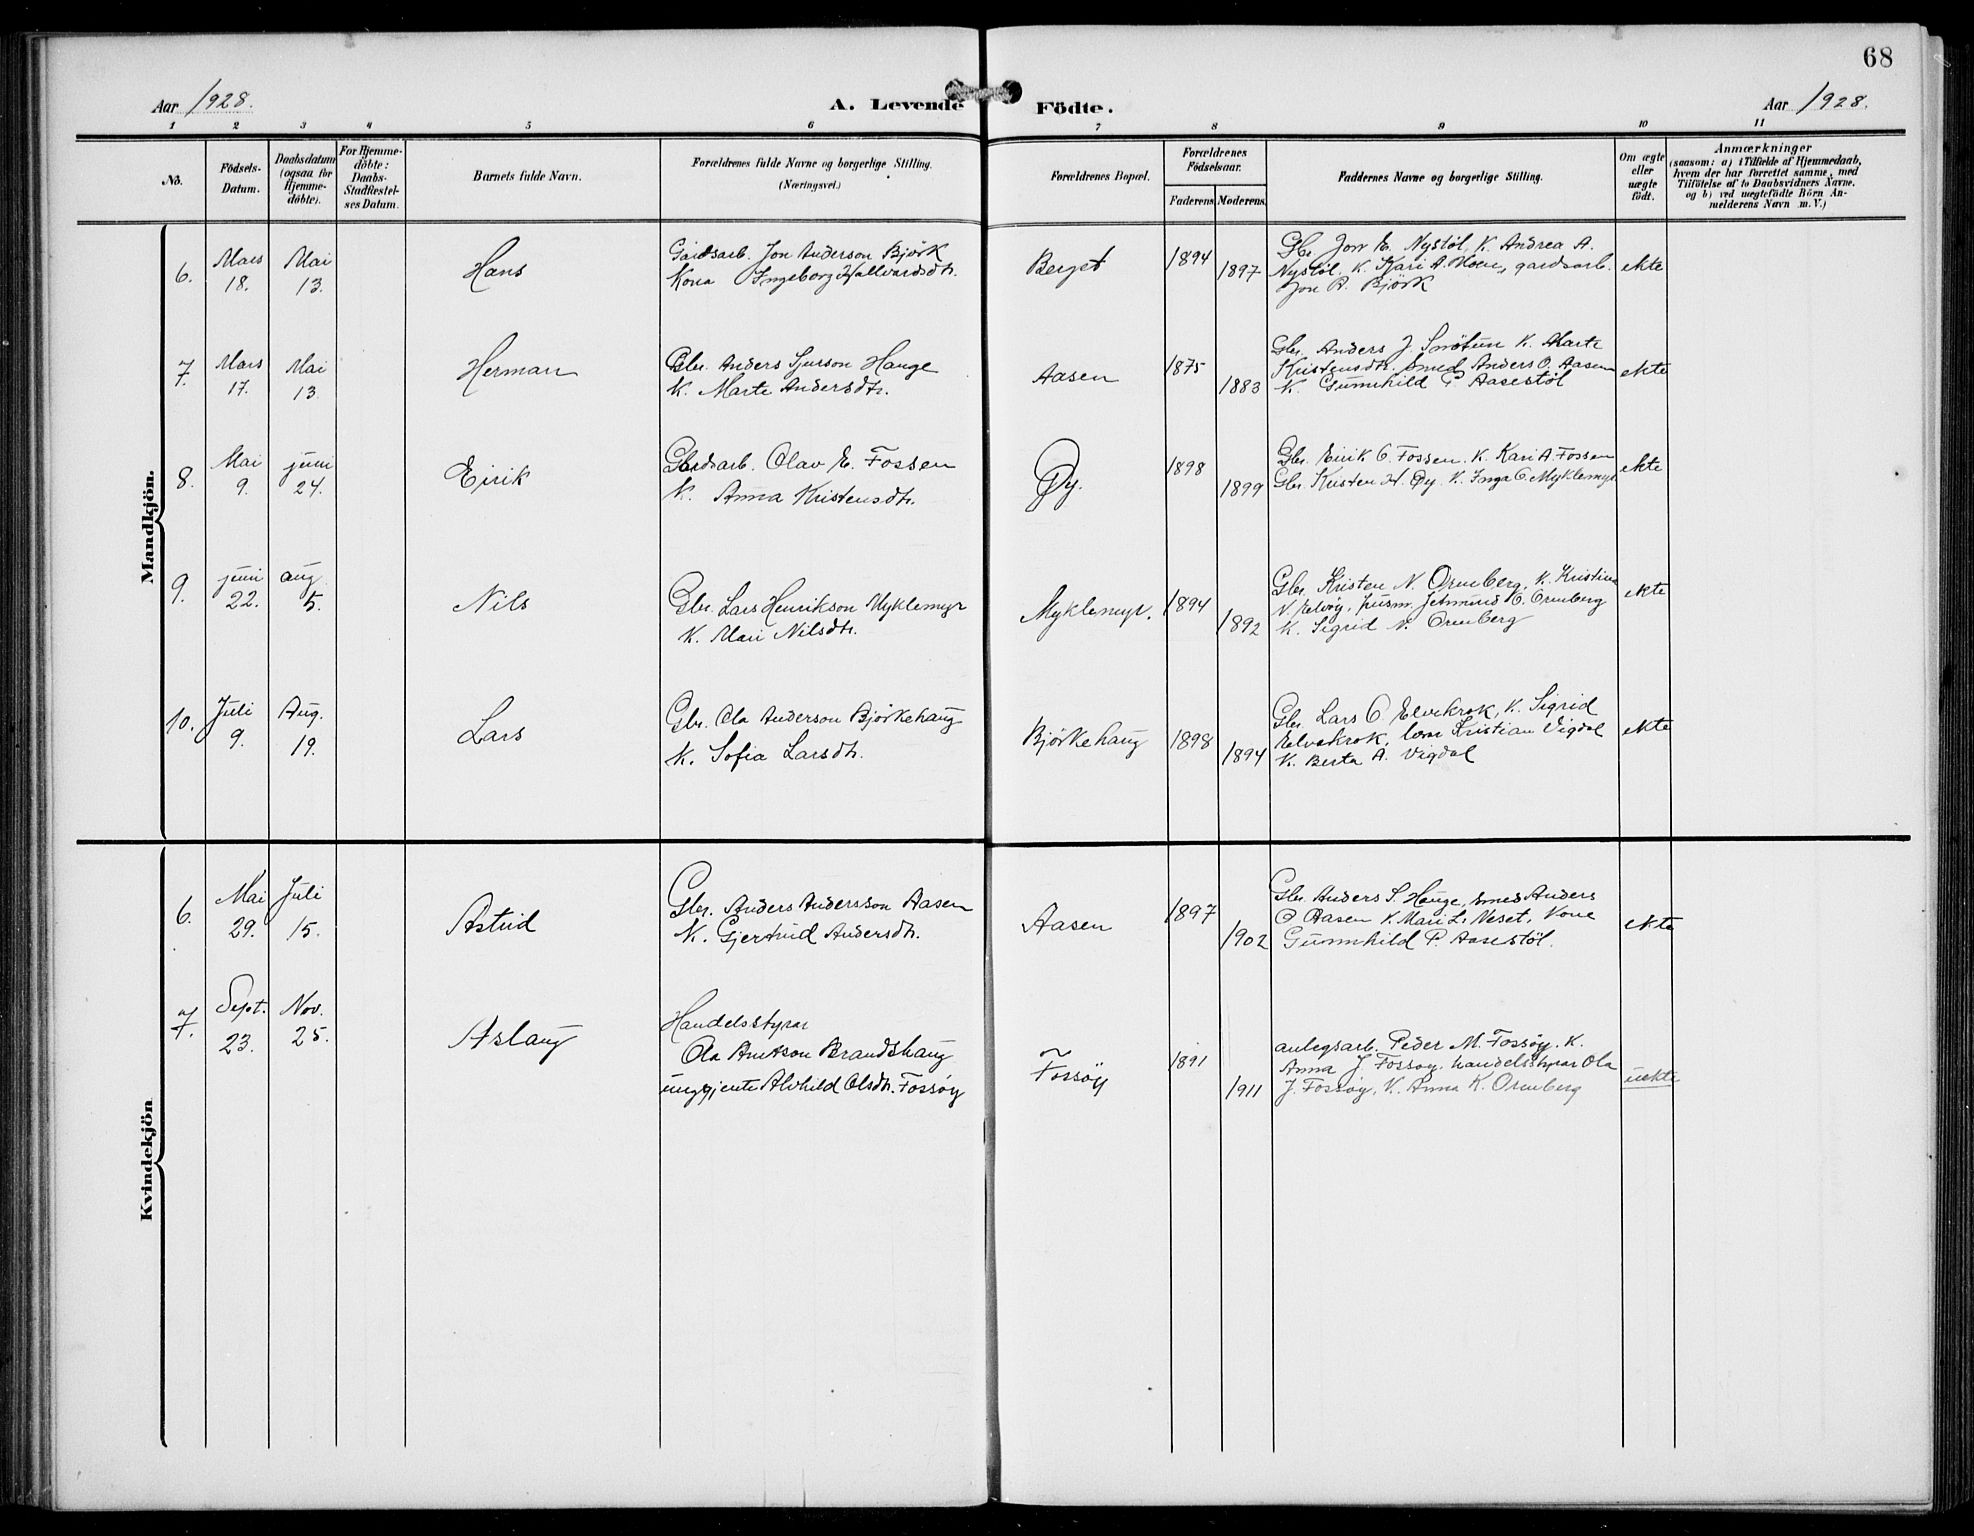 68
Aar 1928.
A. Levende Födte.
Aar 1928.
1 2 3 4 5 6 7 8 9 10 11
No.
Födsels-Datum.
Daabsdatum (ogsaa for Hjemme-döbte).
For Hjemme-döbte: Daabs-Stadfæstel-ses Datum.
Barnets fulde Navn.
Forældrenes fulde Navne og borgerlige Stilling.
(Næringsvei.)
Forældrenes Bopæl.
Forældrenes Födselsaar.
Faderens Moderens
Faddernes Navne og borgerlige Stilling.
Om ægte eller uægte födt.
Anmærkninger
(saasom: a) i Tilfælde af Hjemmedaab,
hvem der har forrettet samme, med
Tilföielse af to Daabsvidners Navne.
og b) ved uægtefödte Börn An-
melderens Navn m. V.)
Mandkjön.
6. Mars 18. Mai 13.
Hans
Gardsarb. Jon Anderson Björk
Kona Ingeborg Hallvardsdtr.
Berget
1894
1897
Gbr. Jon E. Nystøl, K. Andrea A.
Nystøl, K. Kari A. Moen, gardsarb.
Jon R. Björk
ekte
7. Mars 17. Mai 13.
Herman
Gbr. Anders Sjurson Hauge
K. Marte Andersdtr.
Aasen
1875
1883
Gbr. Anders J. Snøtun K. Marte
Kristensdtr. Smed Anders O. Aasen
K. Gunnhild P. Aasestøl
ekte
8. Mai 9. juni 24.
Eirik
Gardsarb. Olav E. Fossen
K. Anna Kristensdtr.
Øy.
1898
1899
Gbr. Eirik O. Fossen. K. Kari A. Fossen
Gbr. Kristen H. Øy. K. Inga O. Myklemyr
ekte
9. juni 22. aug 5.
Nils
Gbr. Lars Henrikson Myklemyr
K. Mari Nilsdtr.
Myklemyr.
1894
1892
Gbr. Kristen N. Ormberg, K. Kristina
N. Elvøy, husm. Jetmund K. Ormberg
K. Sigrid N. Ormberg
ekte
10. Juli 9. Aug. 19.
Lars
Gbr. Ola Anderson Bjørkehaug
K. Sofia Larsdtr.
Bjørkehaug
1898
1894
Gbr. Lars O. Elvekrok, K. Sigrid
Elvekrok, lærar Kristian Vigdal
K. Berta A. Vigdal
ekte
Kvindekjön
6. Mai 29. Juli 15.
Astrid
Gbr. Anders Andersson Aasen
K. Gjertrud Andersdtr.
Aasen
1897
1902
Gbr. Anders S. Hauge, smed Anders
O Aasen K. Mari L. Neset, Kone
Gunnhild P. Aasestøl.
ekte
7. Sept. 23. Nov. 25.
Aslaug
Handelsstyrar
Ola Knutson Brandshaug
ungjente Alvhild Olsdtr. Fossøy
Fossøy
1891
1911
anlegsarb. Peder M. Fossøy, K.
Anna J. Fossøy. handelsstyrar Ola
J. Fossøy, K. Anna K. Ormberg
uekte